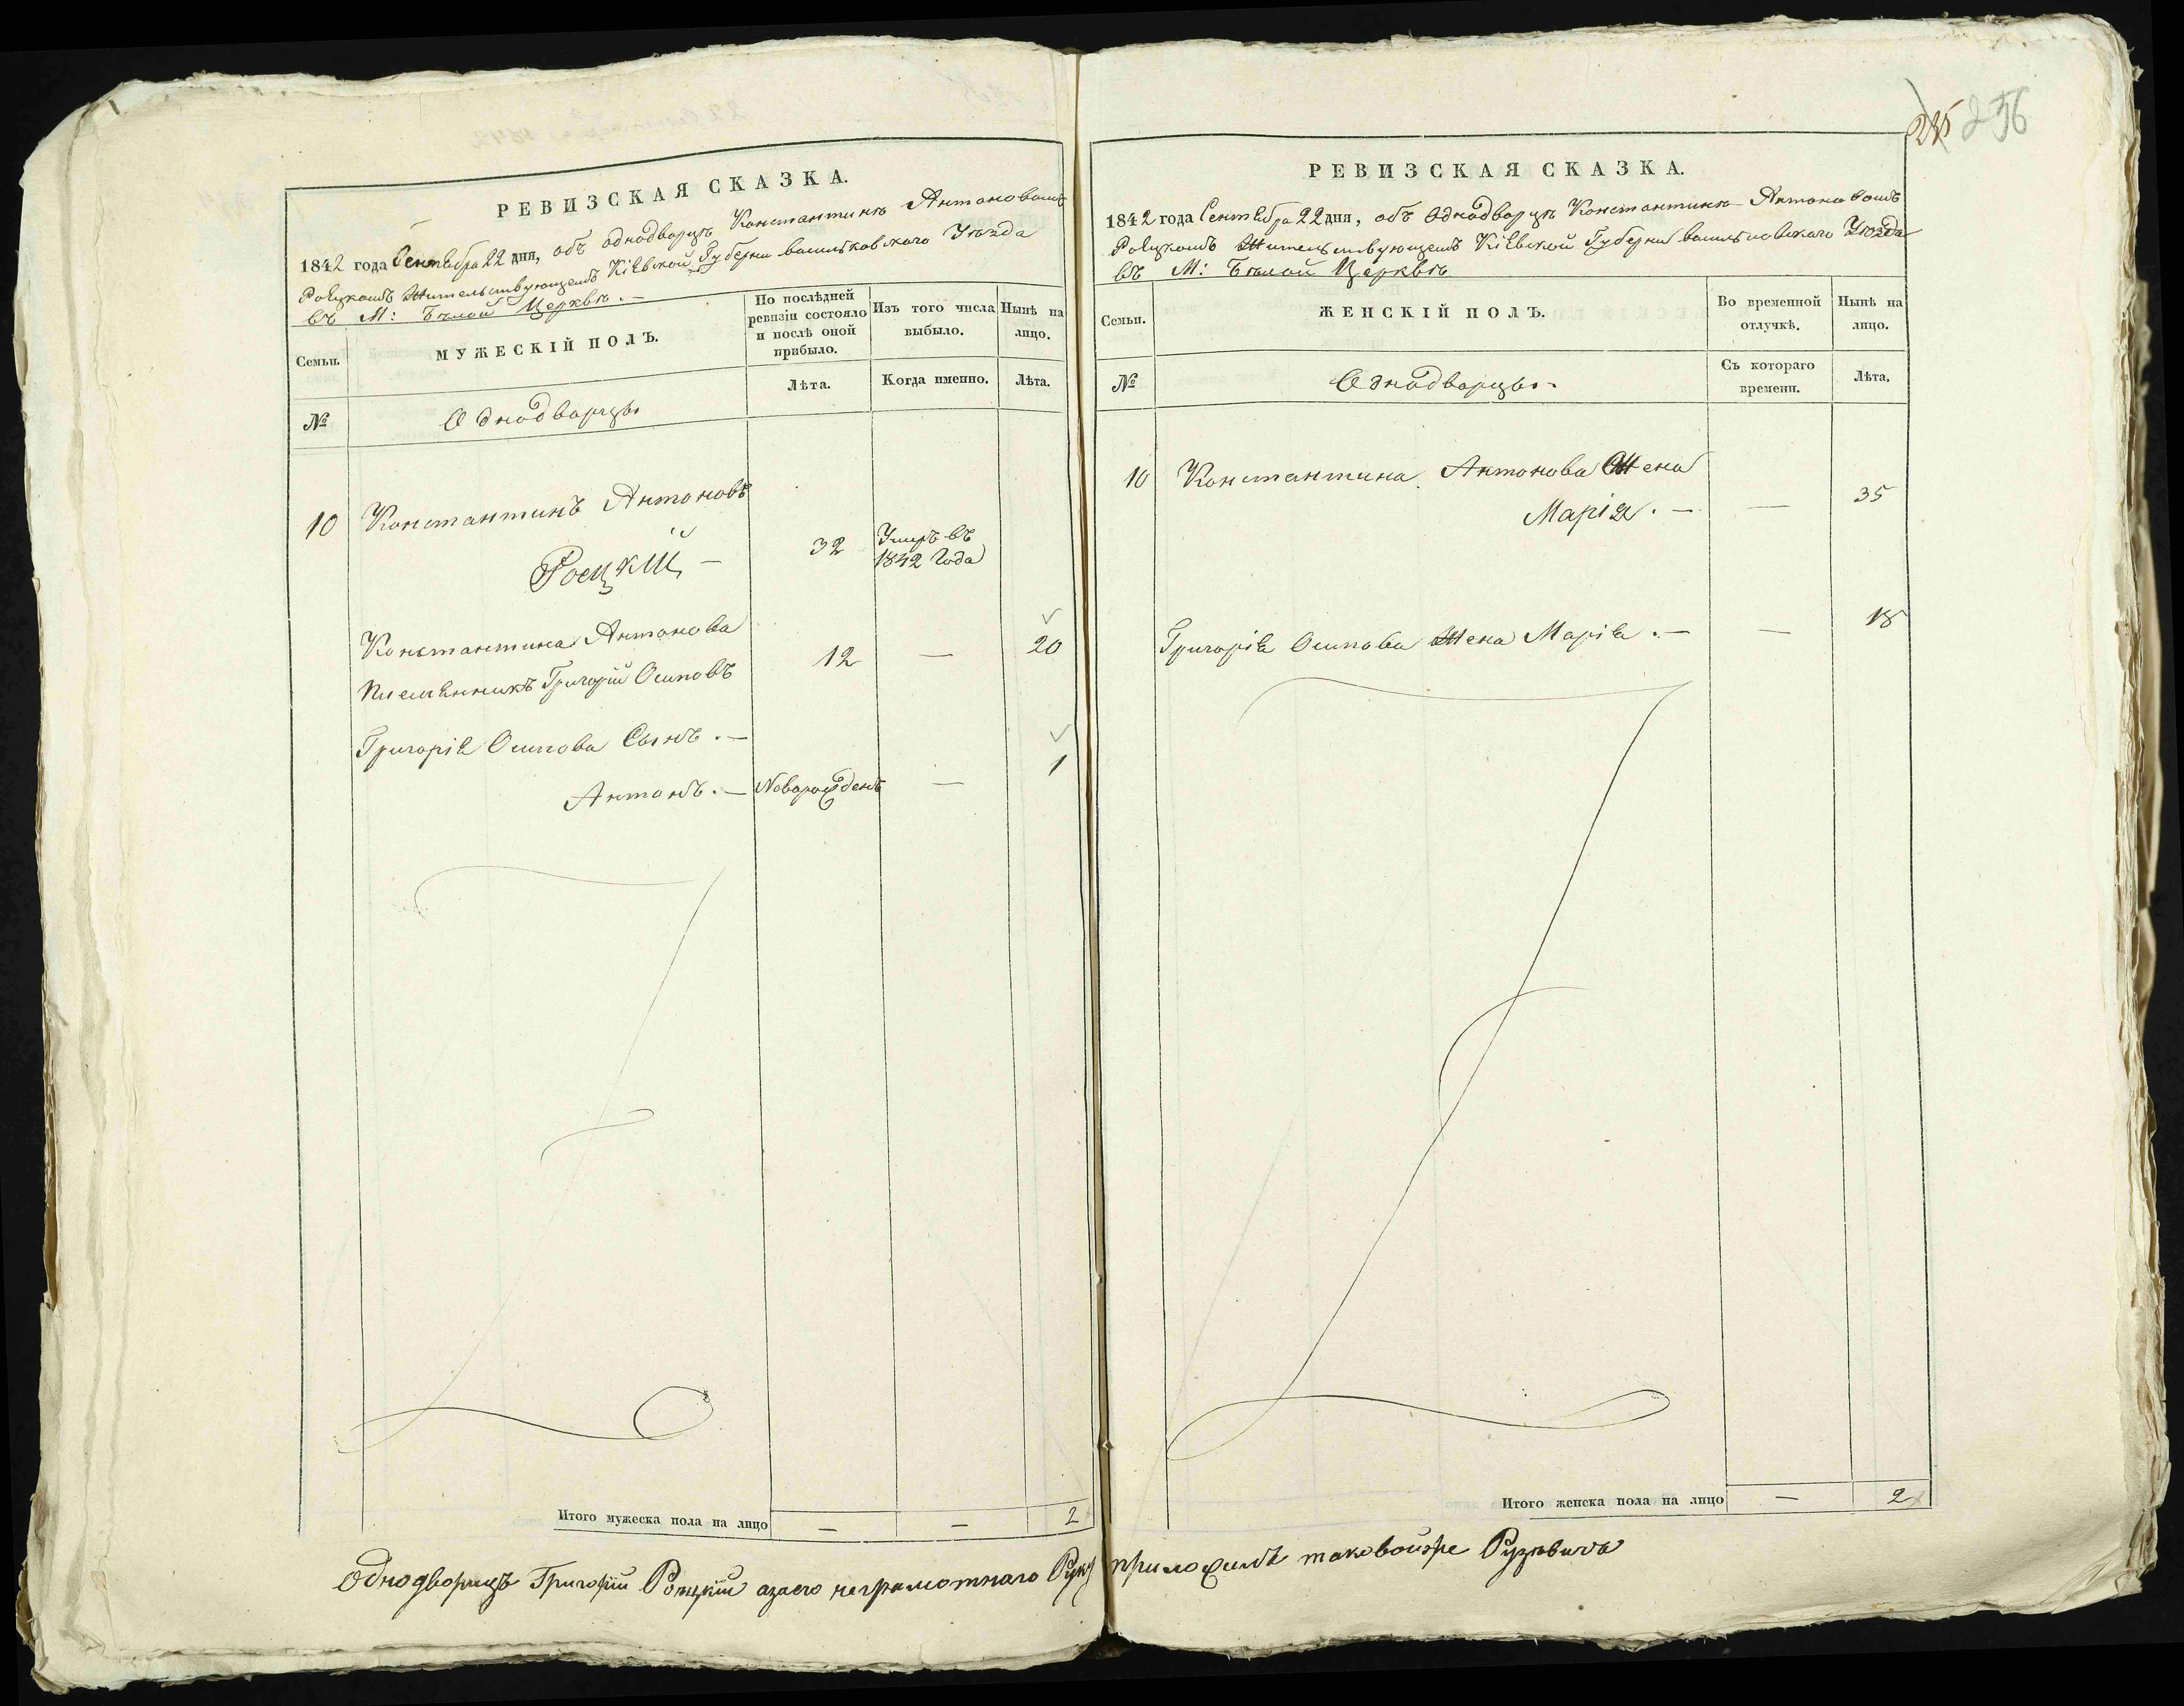 РЕВИЗСКАЯ СКАЗКА.
1842 года Сентебра 22 дня, объ однодворцѣ Константинѣ Антоновомъ
Роецкомъ Жительствующемъ Кіевской Губерни васильковского Уѣзда
въ М: Бѣлой Церквѣ. —
Семьи.
МУЖЕСКІЙ ПОЛЪ.
По послѣдней
ревизіи состояло
и послѣ оной
прибыло.
Изъ того числа
выбыло.
Нынѣ на
лицо.
№
Однодворцы
Лѣта.
Когда именно.
Лѣта.
10 Константинъ Антоновъ
Роецкій — 32 Умеръ въ
1842 Года
Константина Антонова
племенникъ Григорій Осиповъ 12 — 20
Григоріе Осипова Сынъ. —
Антонъ. — Новорожденъ — 1
Итого мужеска пола на лицо — — 2
235 256
РЕВИЗСКАЯ СКАЗКА.
1842 года Сентебра 22 дня, объ однодворцѣ Константинѣ Антоновомъ
Роецкомъ Жительствующемъ Кіевской Губерни васильковскаго Уѣзда
въ М: Бѣлой Церквѣ
Семьи.
ЖЕНСКІЙ ПОЛЪ.
Во временной
отлучкѣ.
Нынѣ на
лицо.
№
Однодворцы.
Съ котораго
времени.
Лѣта.
10 Константина Антонова Жена
Марія. — — 35
Григоріе Осипова Жена Маріе. — — 18
Итого женска пола на лицо — 2
Однодворецъ Григорій Роецкій азаего неграмотнаго Руку приложилъ таковойже